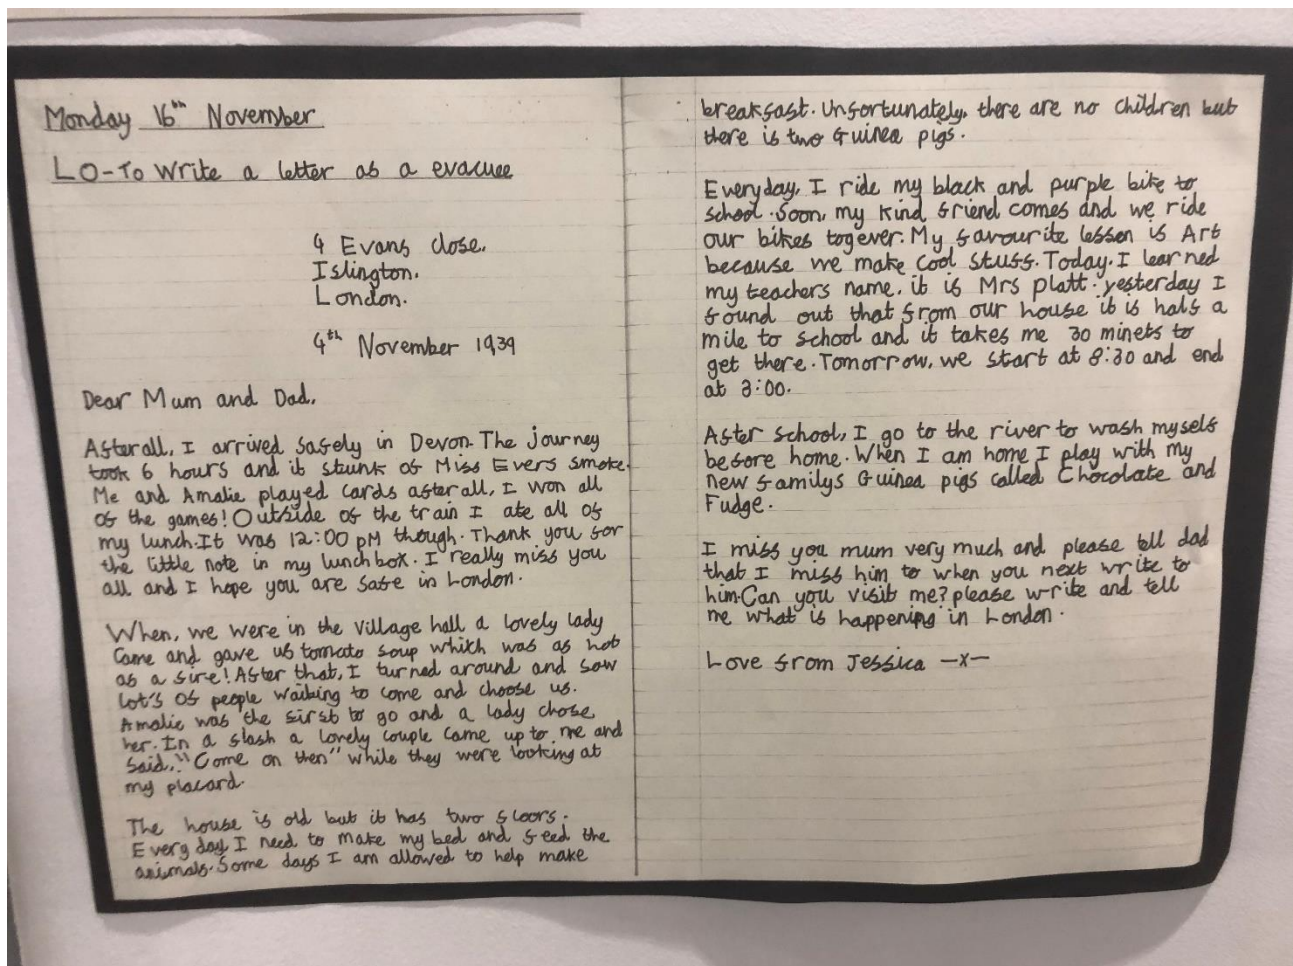 Monday 16th November
LO-To Write a letter as a evacuee
4 Evans close.
Islington.
London.
4th November 1939
Dear Mum and Dad,
After all, I arrived safely in Devon. The journey
took 6 hours and it stunk of Miss Evers smoke.
Me and Amalie played cards after all, I won all
of the games! Outside of the train I ate all of
my lunch. It was 12:00 pM though. Thank you for
the little note in my lunchbox. I really miss you
all and I hope you are safe in London.
When, we were in the village hall a lovely lady
Came and gave us tomato soup which was as hot
as a fire! After that, I turned around and saw
lot's of people waiting to come and choose us.
Amalie was the first to go and a lady chose
her. In a flash a lovely couple came up to me and
Said, "Come on then" while they were looking at
my placard.
The house is old but it has two floors.
Every day I need to make my bed and feed the
animals. Some days I am allowed to help make
breakfast. Unfortunately, there are no children but
there is two Guinea pigs.
Everyday, I ride my black and purple bike to
school. Soon, my kind friend comes and we ride
our bikes togever. My favourite lesson is Art
because we make cool stuff. Today, I learned
my teachers name, it is Mrs Platt. yesterday I
found out that from our house it is half a
mile to school and it takes me 30 minets to
get there. Tomorrow, we start at 8:30 and end
at 3:00.
After school, I go to the river to wash myself
before home. When I am home I play with my
new familys Guinea pigs called Chocolate and
Fudge.
I miss you mum very much and please tell dad
that I miss him to when you next write to
him. Can you visit me? please write and tell
me what is happening in London.
Love from Jessica -x-